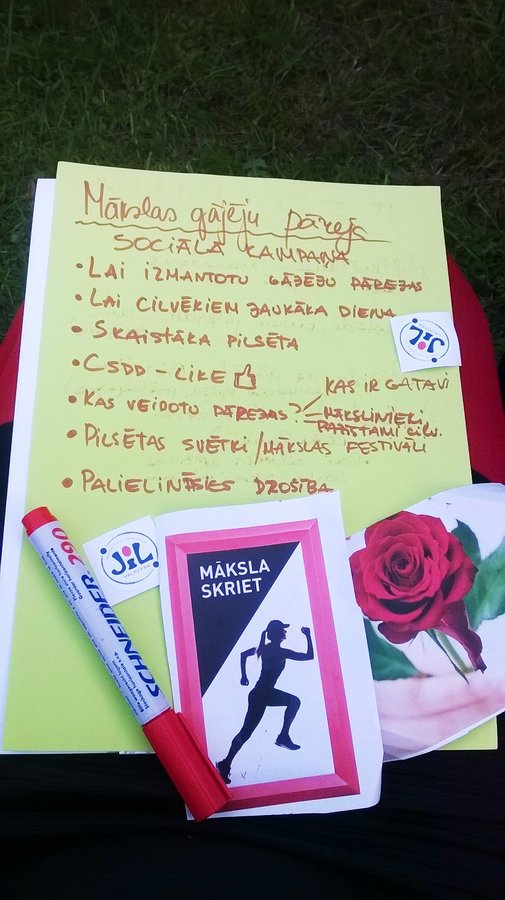 Mākslas gājēju pāreja
SOCIĀLĀ KAMPAŅA
• LAI IZMANTOTU GĀJĒJU PĀREJAS
• LAI CILVĒKIEM JAUKĀKA DIENA
• SKAISTĀKA PILSĒTA
• CSDD - LIKE
• KAS VEIDOTU PĀREJAS?
KAS IR GATAVI
MĀKSLINIEKI
PAZĪSTAMI CILV.
• PILSĒTAS SVĒTKI / MĀKSLAS FESTIVĀLI
• PALIELINĀSIES DROŠĪBA
JIL
JIL
VALMIERA
290
SCHNEIDER
MĀKSLA
SKRIET